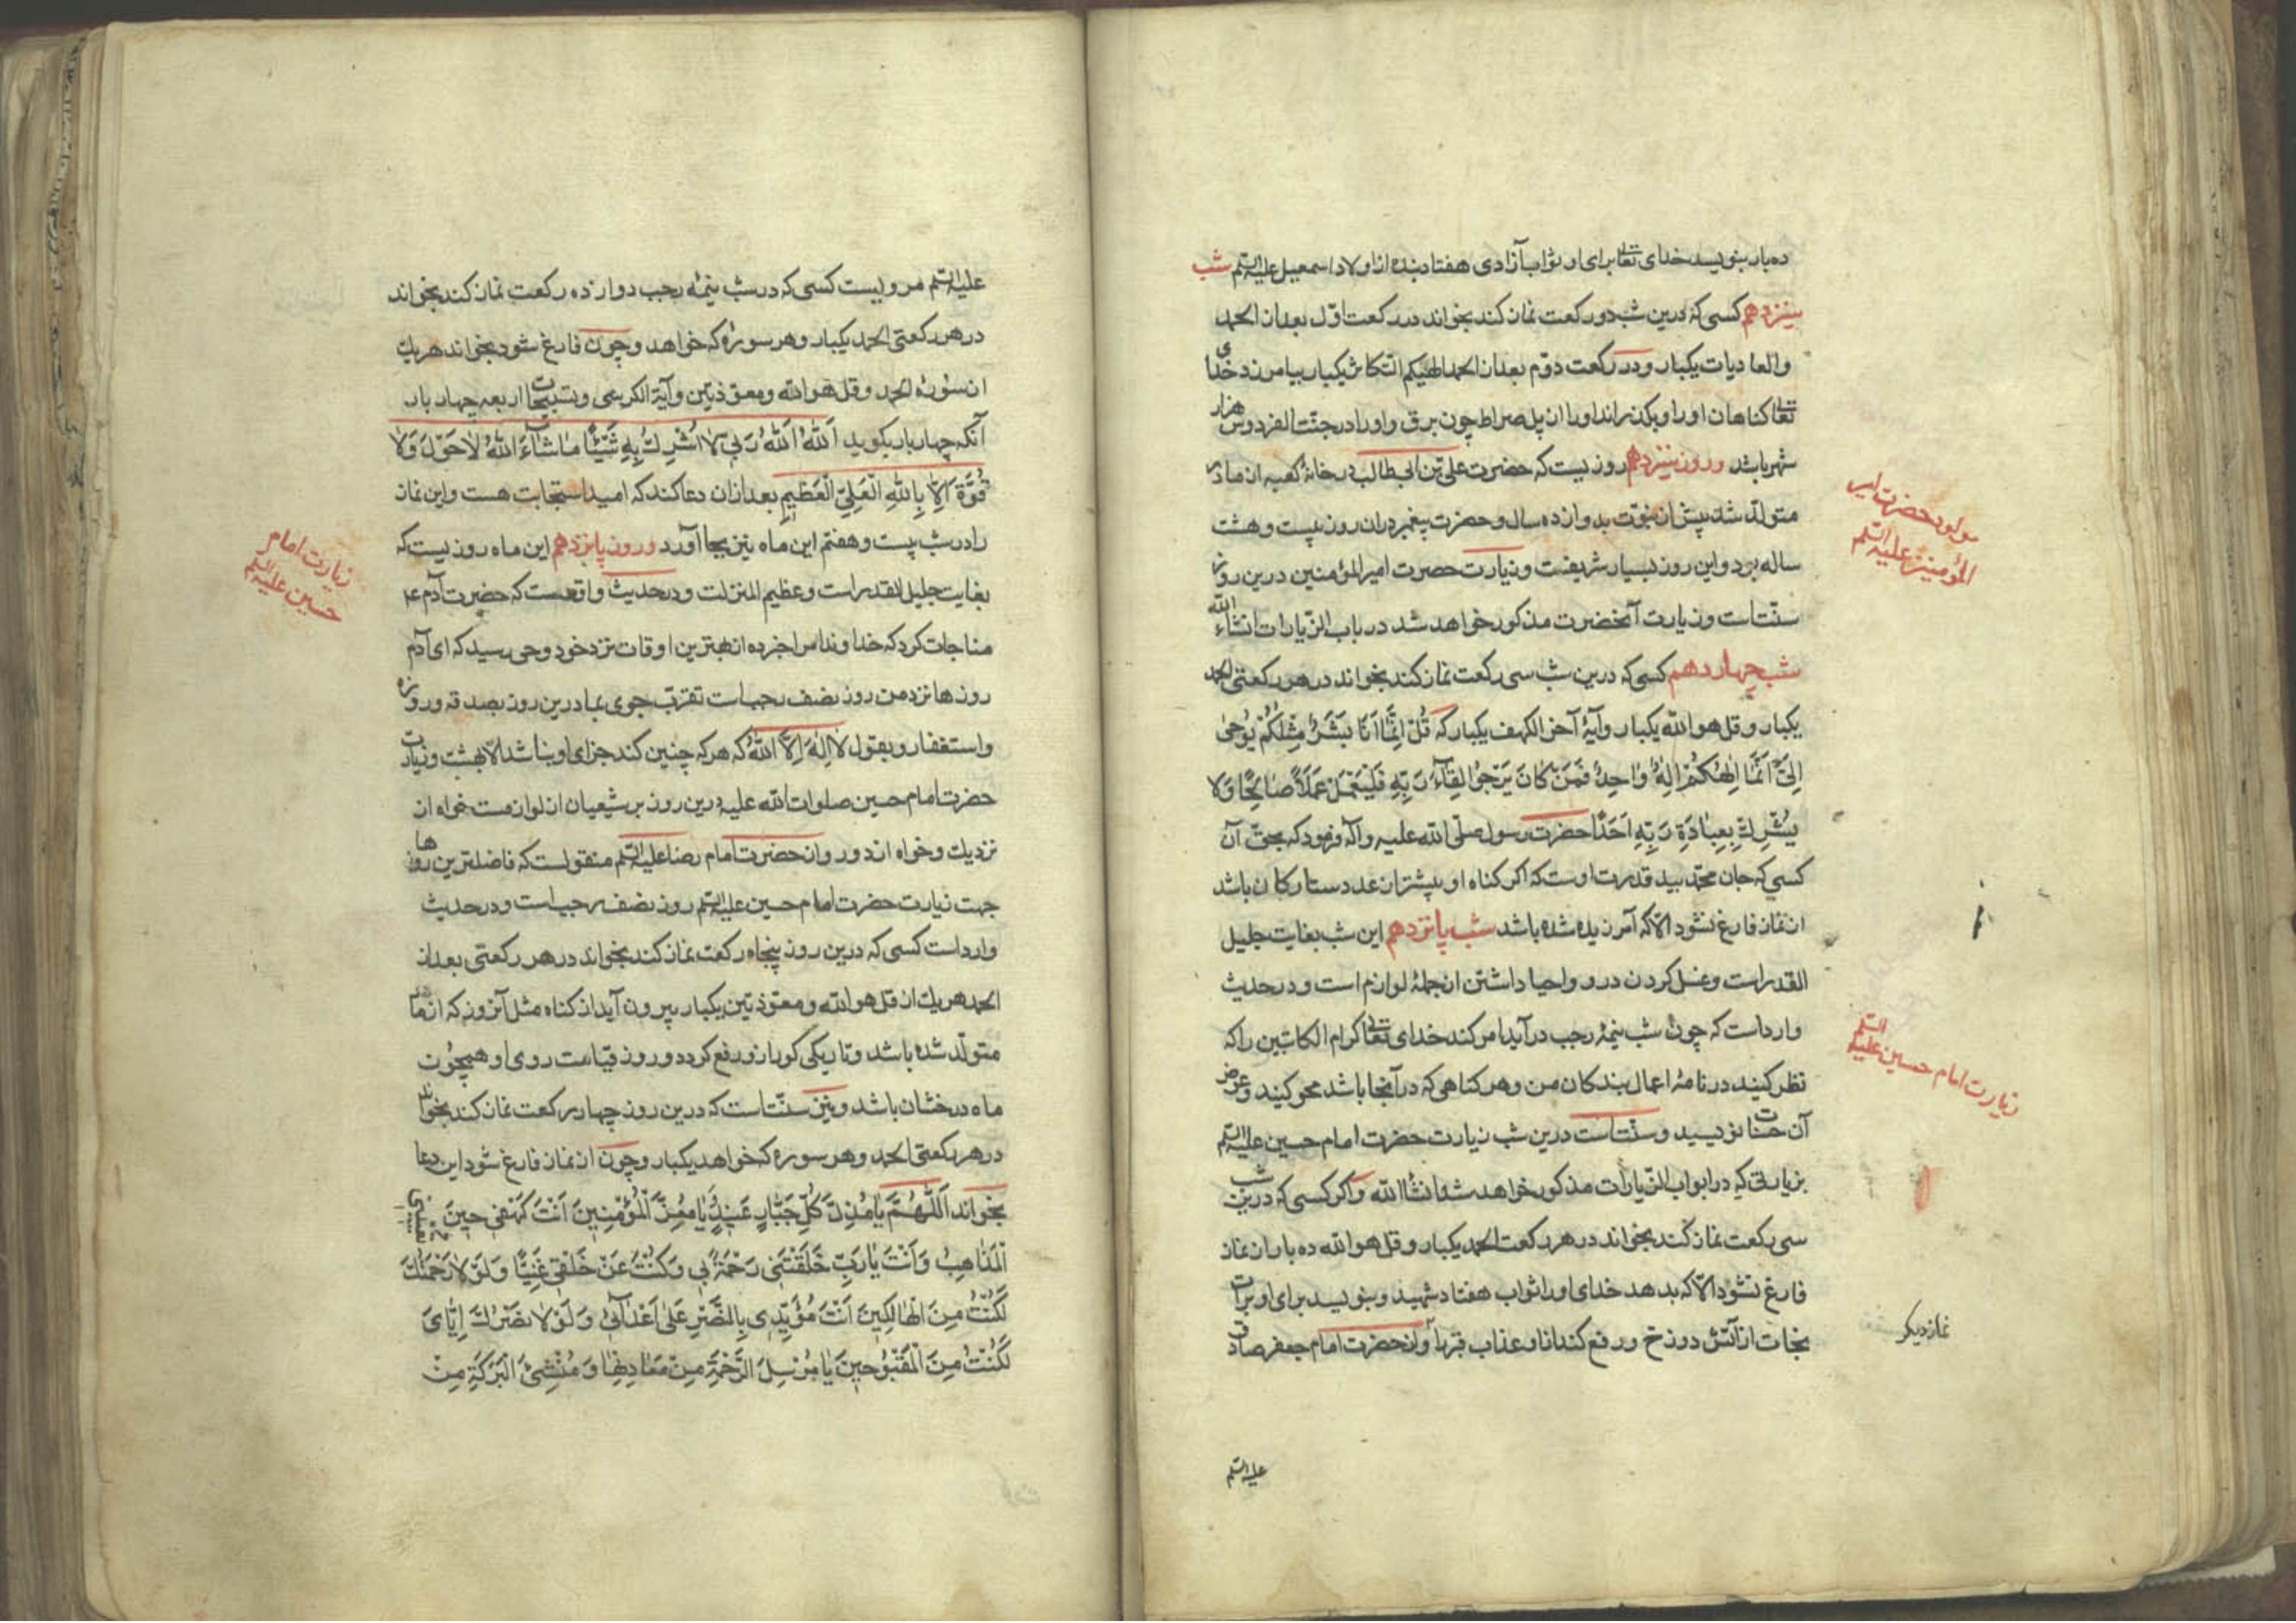 ده بار بنویسد خدای تعالی برای او ثواب آزادی هفتاد بنده از اولاد اسمعیل علیه السلم شب
سیزدهم کسی که درین شب دو رکعت نماز کند بخواند در رکعت اول بعد از الحمد
والعادیات یکبار و در رکعت دوم بعد از الحمد الهیکم التکاثر یکبار بیامرزد خدای
تعالی کناهان او را و بکذراند او را از پل صراط چون برق و او را در جنت الفردوس هزار
شهر باشد و روز سیزدهم روزیست که حضرت علی بن ابیطالب در خانه کعبه از مادر
متولد شد پیش از نبوت بدوازده سال و حضرت پیغمبر در ان روز بیست و هشت
ساله بود و این روز بسیار شریفست و زیارت حضرت امیر المؤمنین درین روز
سنتست و زیارت آنحضرت مذکور خواهد شد در باب الزیارات انشاء الله
شب چهاردهم کسی که درین شب سی رکعت نماز کند بخواند در هر رکعتی الحمد
یکبار و قل هو الله یکبار و آیه آخر الکهف یکبار که قُلْ اِنَّمَا اَنَا بَشَرٌ مِثْلُكُمْ يُوحىٰ
اِلَيَّ اَنَّمَا اِلٰهُكُمْ اِلٰهٌ وٰاحِدٌ فَمَنْ كَانَ يَرْجُوا لِقٰآءَ رَبِّهِ فَلْيَعْمَلْ عَمَلاً صٰالِحًا وَلا
يُشْرِكْ بِعِبٰادَةِ رَبِّهِ اَحَدًا حضرت رسول صلی الله علیه و اله فرمود که بحق آن
کسی که جان محمد بید قدرت اوست که اکر کناه او بیشتر از عدد ستارکان باشد
از نماز فارغ نشود الا که آمرزیده شده باشد شب پانزدهم این شب بغایت جلیل
القدر است و غسل کردن درو و احیا داشتن از جمله لوازم است و در حدیث
وارد است که چون شب نیمه رجب درآید امر کند خدای تعالی کرام الکاتبین را که
نظر کنید در نامه اعمال بندکان من و هر کناهی که در آنجا باشد محو کنید و عوض
آن حسنات نویسید و سنتست درین شب زیارت حضرت امام حسین علیه السلم
بزیارتی که در ابواب الزیارات مذکور خواهد شد انشاالله و اکر کسی که درین شب
سی رکعت نماز کند بخواند در هر رکعت الحمد یکبار و قل هو الله ده بار از نماز
فارغ نشود الا که بدهد خدای او را ثواب هفتاد شهید و بنویسد برای او برات
نجات از آتش دوزخ و رفع کند ازو عذاب قبر را و از حضرت امام جعفر صادق
علیه السلم
مولود حضرت امیر
المؤمنین علیه السلم
زیارت امام حسین علیه السلم
نماز دیکر
علیه السلم مرویست کسی که در شب نیمه رجب دوازده رکعت نماز کند بخواند
در هر رکعتی الحمد یکبار و هر سوره که خواهد و چون فارغ شود بخواند هر یک
از سوره الحمد و قل هو الله و معوذتین و آیة الکرسی و تسبیحات اربعه چهار بار
آنکه چهار بار بکوید اَللهُ اَللهُ رَبّي لاٰ اُشْرِكُ بِهِ شَيْئًا مٰا شٰآءَ اللهُ لاٰ حَوْلَ وَلاٰ
قُوَّةَ اِلاّٰ بِاللهِ الْعَلِيِّ الْعَظيمِ بعد از ان دعا کند که امید استجابت هست و این نماز
را در شب بیست و هفتم این ماه نیز بجا آورد و روز پانزدهم این ماه روزیست که
بغایت جلیل القدر است و عظیم المنزلت و در حدیث واقعست که حضرت آدم ع
مناجات کرد که خداوندا مرا خبر ده از بهترین اوقات نزد خود وحی رسید که ای آدم
روزها نزد من روز نصف رجب است تقرب جوی بما درین روز بصدقه و روزه
و استغفار و بقول لاٰ اِلٰهَ اِلاَّ اللهُ که هر که چنین کند جزای او نباشد الا بهشت و زیارت
حضرت امام حسین صلوات الله علیه درین روز بر شیعیان از لوازمست خواه از
نزدیک و خواه از دور و از حضرت امام رضا علیه السلم منقولست که فاضلترین روزها
جهت زیارت حضرت امام حسین علیه السلم روز نصف رجب است و در حدیث
وارد است کسی که درین روز پنجاه رکعت نماز کند بخواند در هر رکعتی بعد از
الحمد هر یک از قل هو الله و معوذتین یکبار بیرون آید از کناه مثل آنروز که از مادر
متولد شده باشد و تاریکی کور ازو رفع کردد و روز قیامت روی او همچون
ماه درخشان باشد و نیز سنتست که درین روز چهار رکعت نماز کند بخواند
در هر رکعتی الحمد و هر سوره که خواهد یکبار و چون از نماز فارغ شود این دعا
بخواند اَللّٰهُمَّ يٰا مُذِلَّ كُلِّ جَبّٰارٍ عَنيدٍ وَيٰا مُعِزَّ الْمُؤْمِنينَ اَنْتَ كَهْفي حينَ
الْمَذٰاهِبُ وَاَنْتَ يٰا رَبِّ خَلَقْتَني رَحْمَةً بي وَكُنْتَ عَنْ خَلْقي غَنِيًّا وَلَوْ لاٰ رَحْمَتُكَ
لَكُنْتُ مِنَ الْهٰالِكينَ اَنْتَ مُؤَيِّدي بِالنَّصْرِ عَلىٰ اَعْدٰآئي وَلَوْ لاٰ نَصْرُكَ اِيّٰايَ
لَكُنْتُ مِنَ الْمَقْبُوحينَ يٰا مُرْسِلَ الرَّحْمَةِ مِنْ مَعٰادِنِهٰا وَمُنْشِئَ الْبَرَكَةِ مِنْ
زیارت امام
حسین علیه السلم